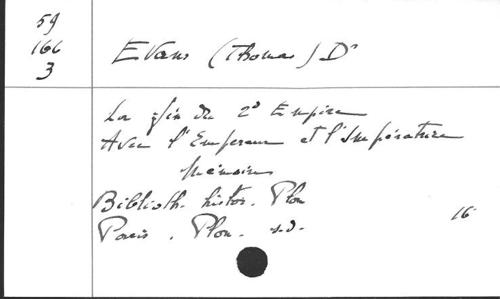 59
166
3
Evans (Thomas) Dr
La fin du 2d Empire
Avec l'Empereur et l'Impératrice
Mémoires
Biblioth. histor. Plon
Paris. Plon. s.d.
16